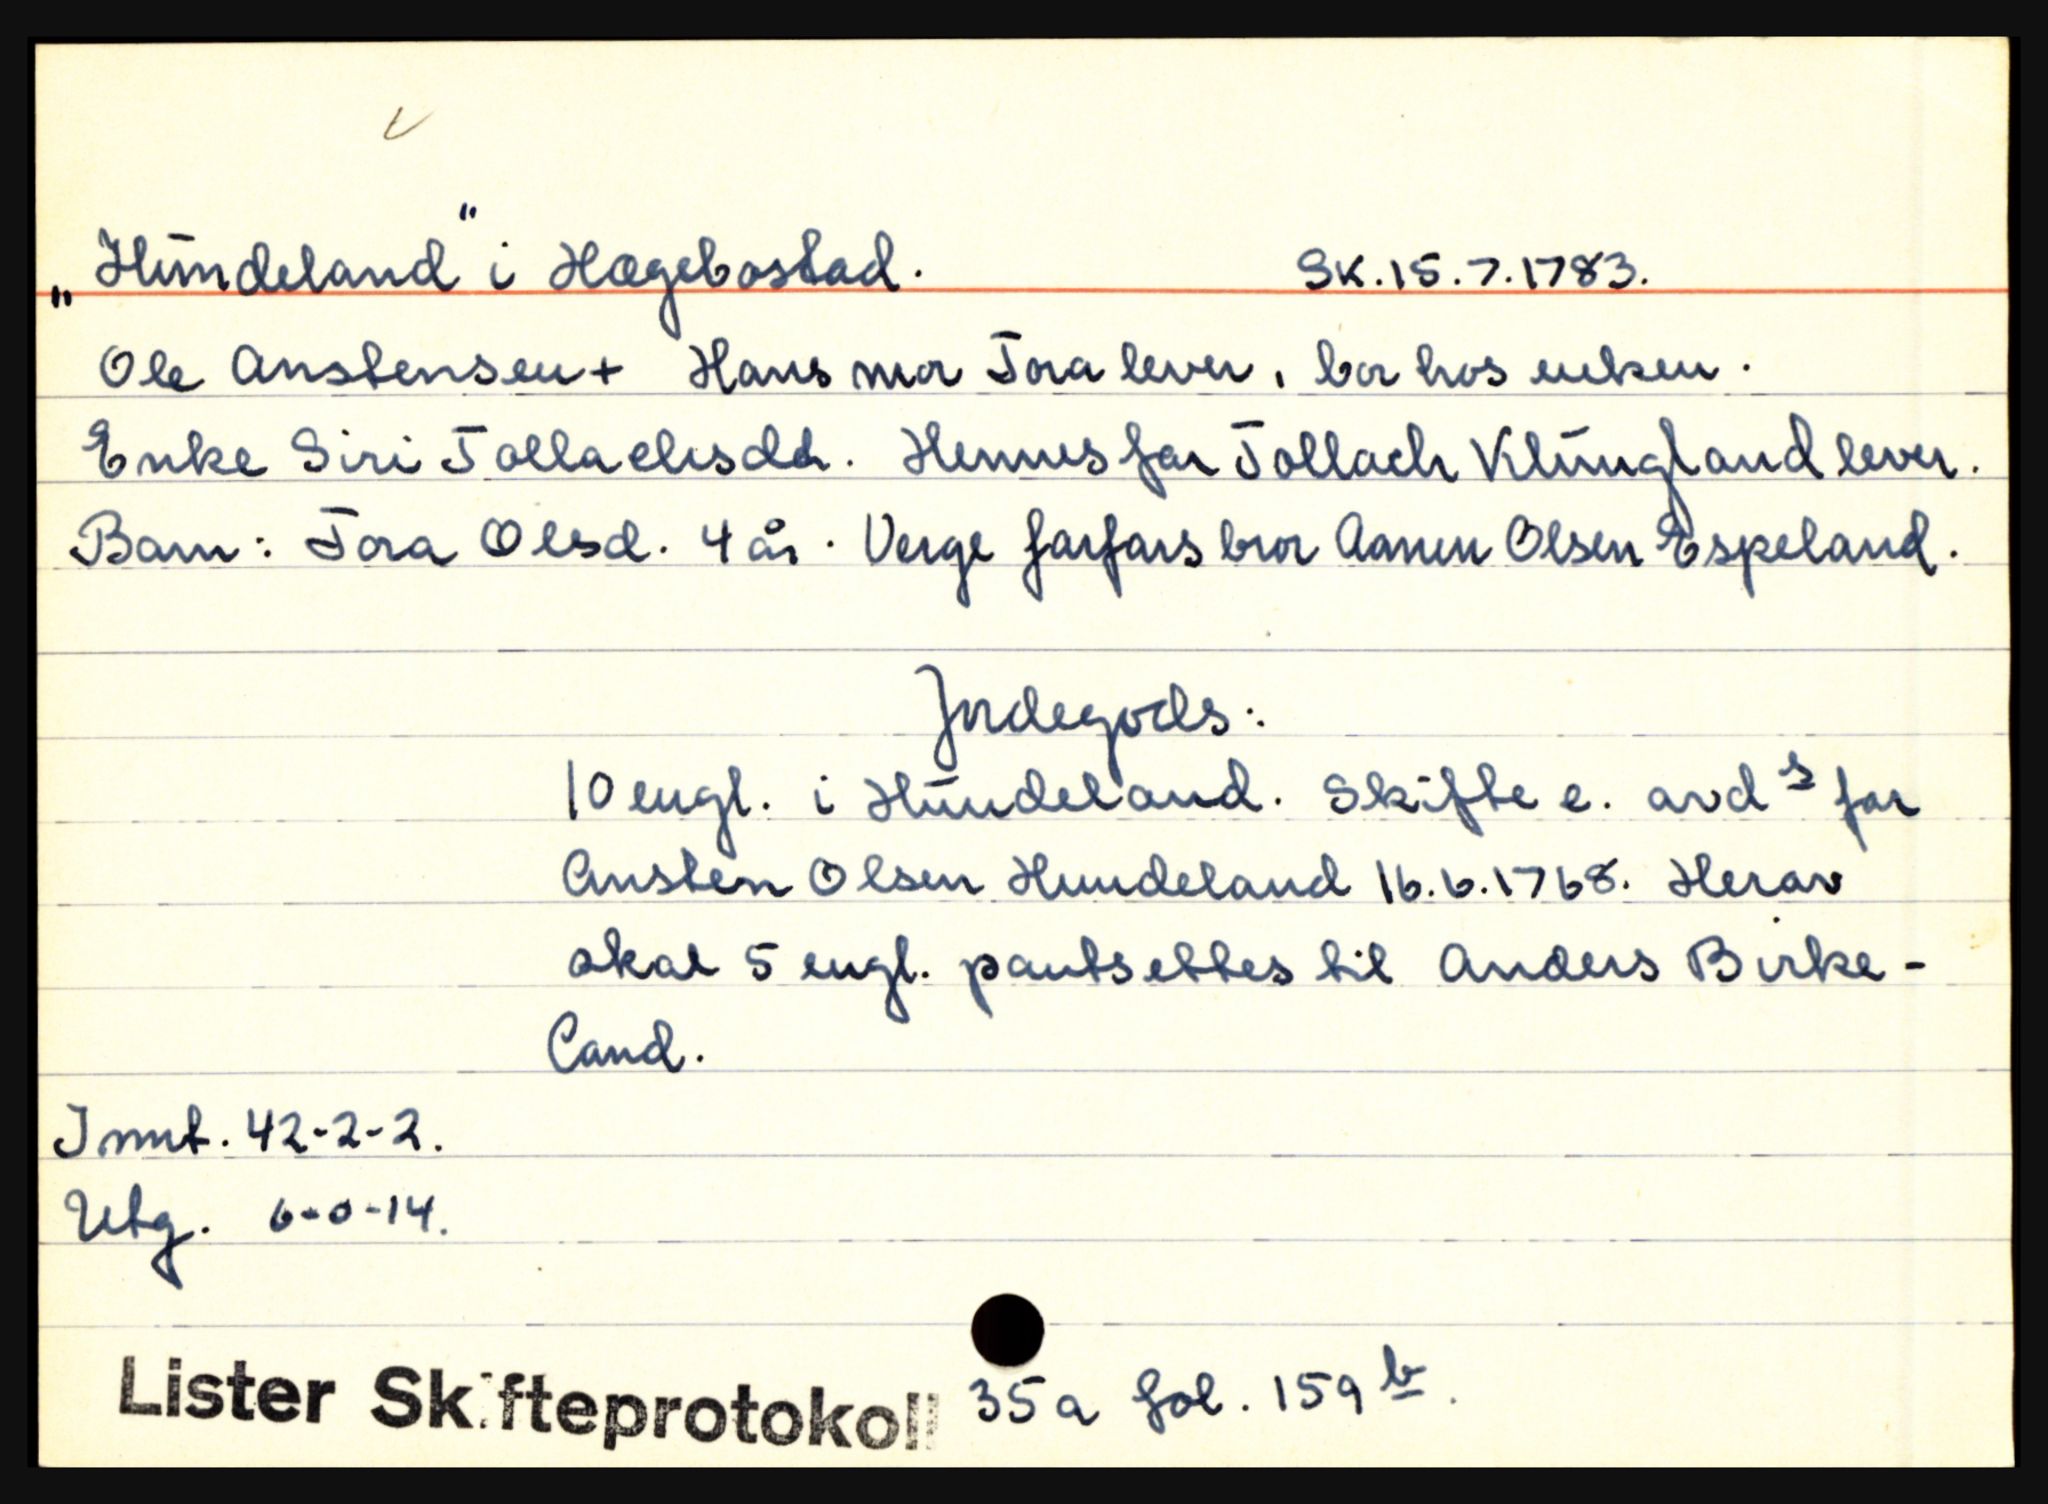 „Hundeland" i Hægebostad. Sk. 15.7.1783.
Ole Anstensen + Hans mor Tora lever, bor hos enken.
Enke Siri Tollachsdd. Hennes far Tollach Klungland lever.
Barn: Tora Olsd. 4 år. Verge farfars bror Aanen Olsen Espeland.
Jordegods:
10 engl. i Hundeland. Skifte e. avds far
Ansten Olsen Hundeland 16.6.1768. Herav
skal 5 engl. pantsettes til Anders Birke-
land.
Innt. 42-2-2.
Utg. 6-0-14.
Lister Skifteprotokoll 35a fol. 159b.